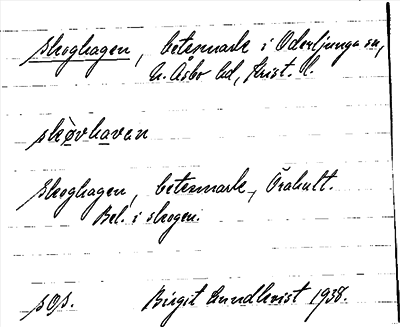 Skoghagen, betesmark i Oderljunga sn,
N. Åsbo hd, Krist. l.
skòvhavan
Skoghagen, betesmark, Örahult.
Bel. i skogen.
sps. Birgit Lundkvist 1938.